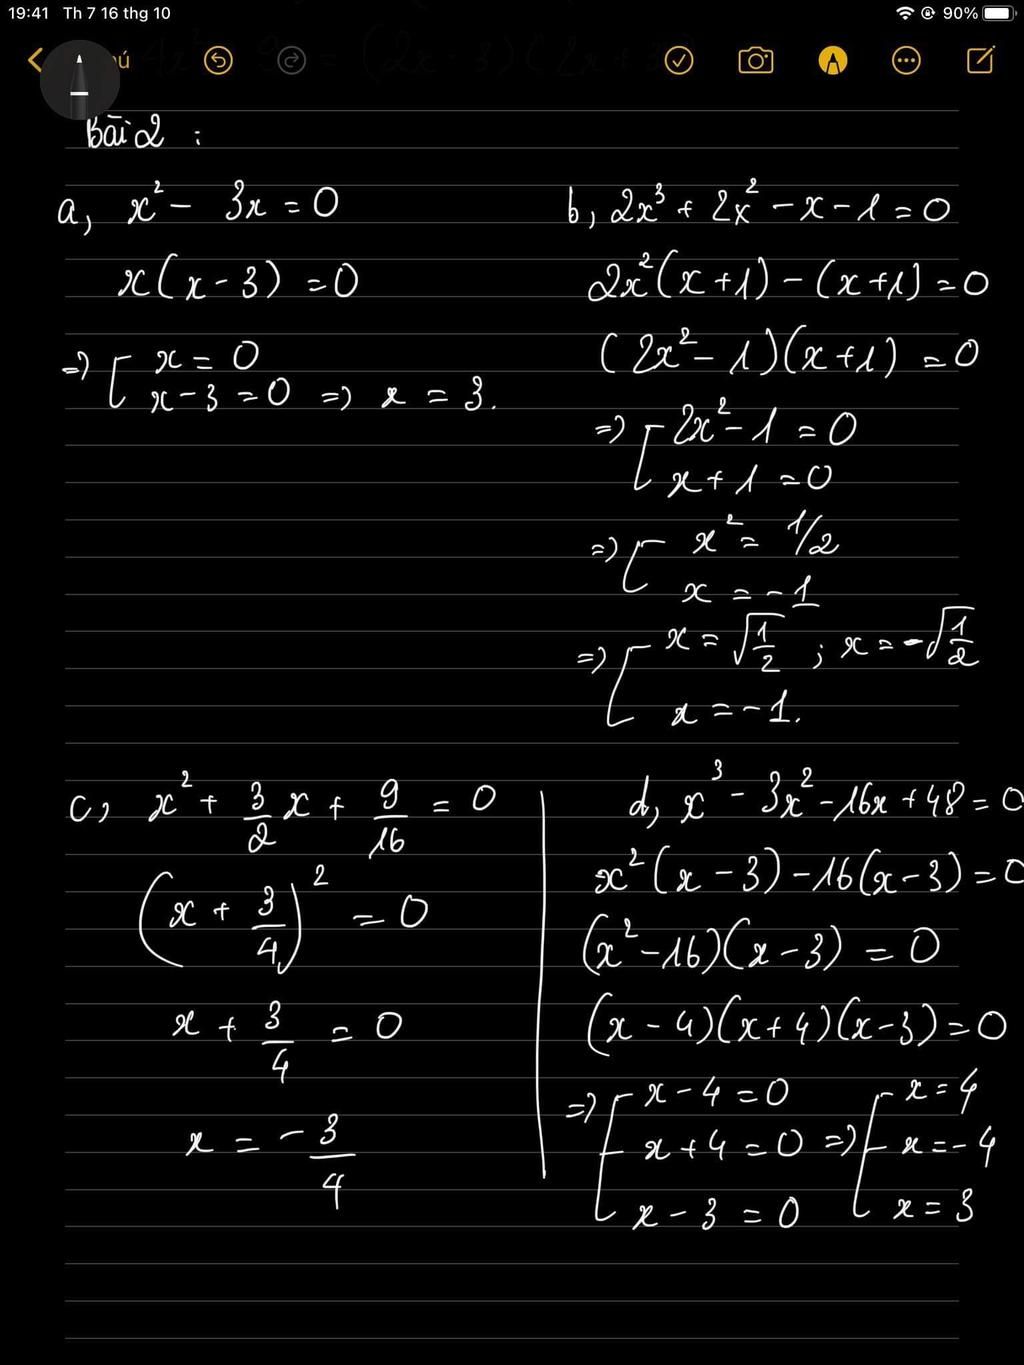 19:41 Th 7 16 thg 10 90%
ú
4x² 9 = (2x - 3)(2x +
Bài 2 :
a, x² - 3x = 0
x(x - 3) = 0
=> [ x = 0
x - 3 = 0 => x = 3.
b, 2x³ + 2x² - x - 1 = 0
2x²(x + 1) - (x + 1) = 0
(2x² - 1)(x + 1) = 0
=> [ 2x² - 1 = 0
x + 1 = 0
=> [ x² = 1/2
x = -1
=> [ x = √(1/2) ; x = -√(1/2)
x = -1.
c, x² + 3/2 x + 9/16 = 0
(x + 3/4)² = 0
x + 3/4 = 0
x = -3/4
d, x³ - 3x² - 16x + 48 = 0
x²(x - 3) - 16(x - 3) = 0
(x² - 16)(x - 3) = 0
(x - 4)(x + 4)(x - 3) = 0
=> [ x - 4 = 0 [ x = 4
x + 4 = 0 => x = -4
x - 3 = 0 x = 3